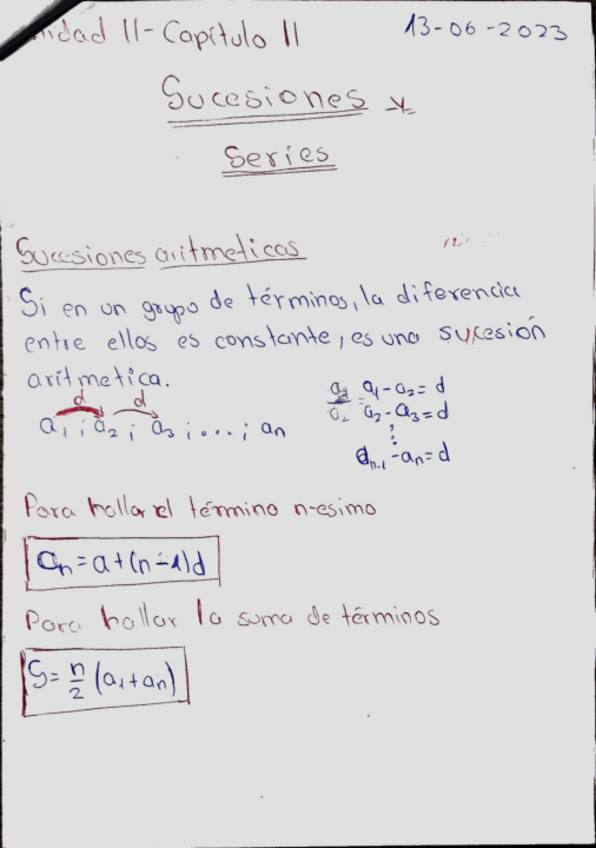 Unidad II - Capítulo II
13-06-2023
Sucesiones y
Series
Sucesiones aritmeticas
Si en un grupo de términos, la diferencia
entre ellos es constante, es una sucesión
aritmetica.
d d
a₁ ; a₂ ; a₃ ; . . . ; aₙ
a₁ - a₂ = d
a₂ - a₃ = d
⋮
aₙ₋₁ - aₙ = d
Para hallar el término n-esimo
aₙ = a + (n - 1)d
Para hallar la suma de términos
S = n/2 (a₁ + aₙ)